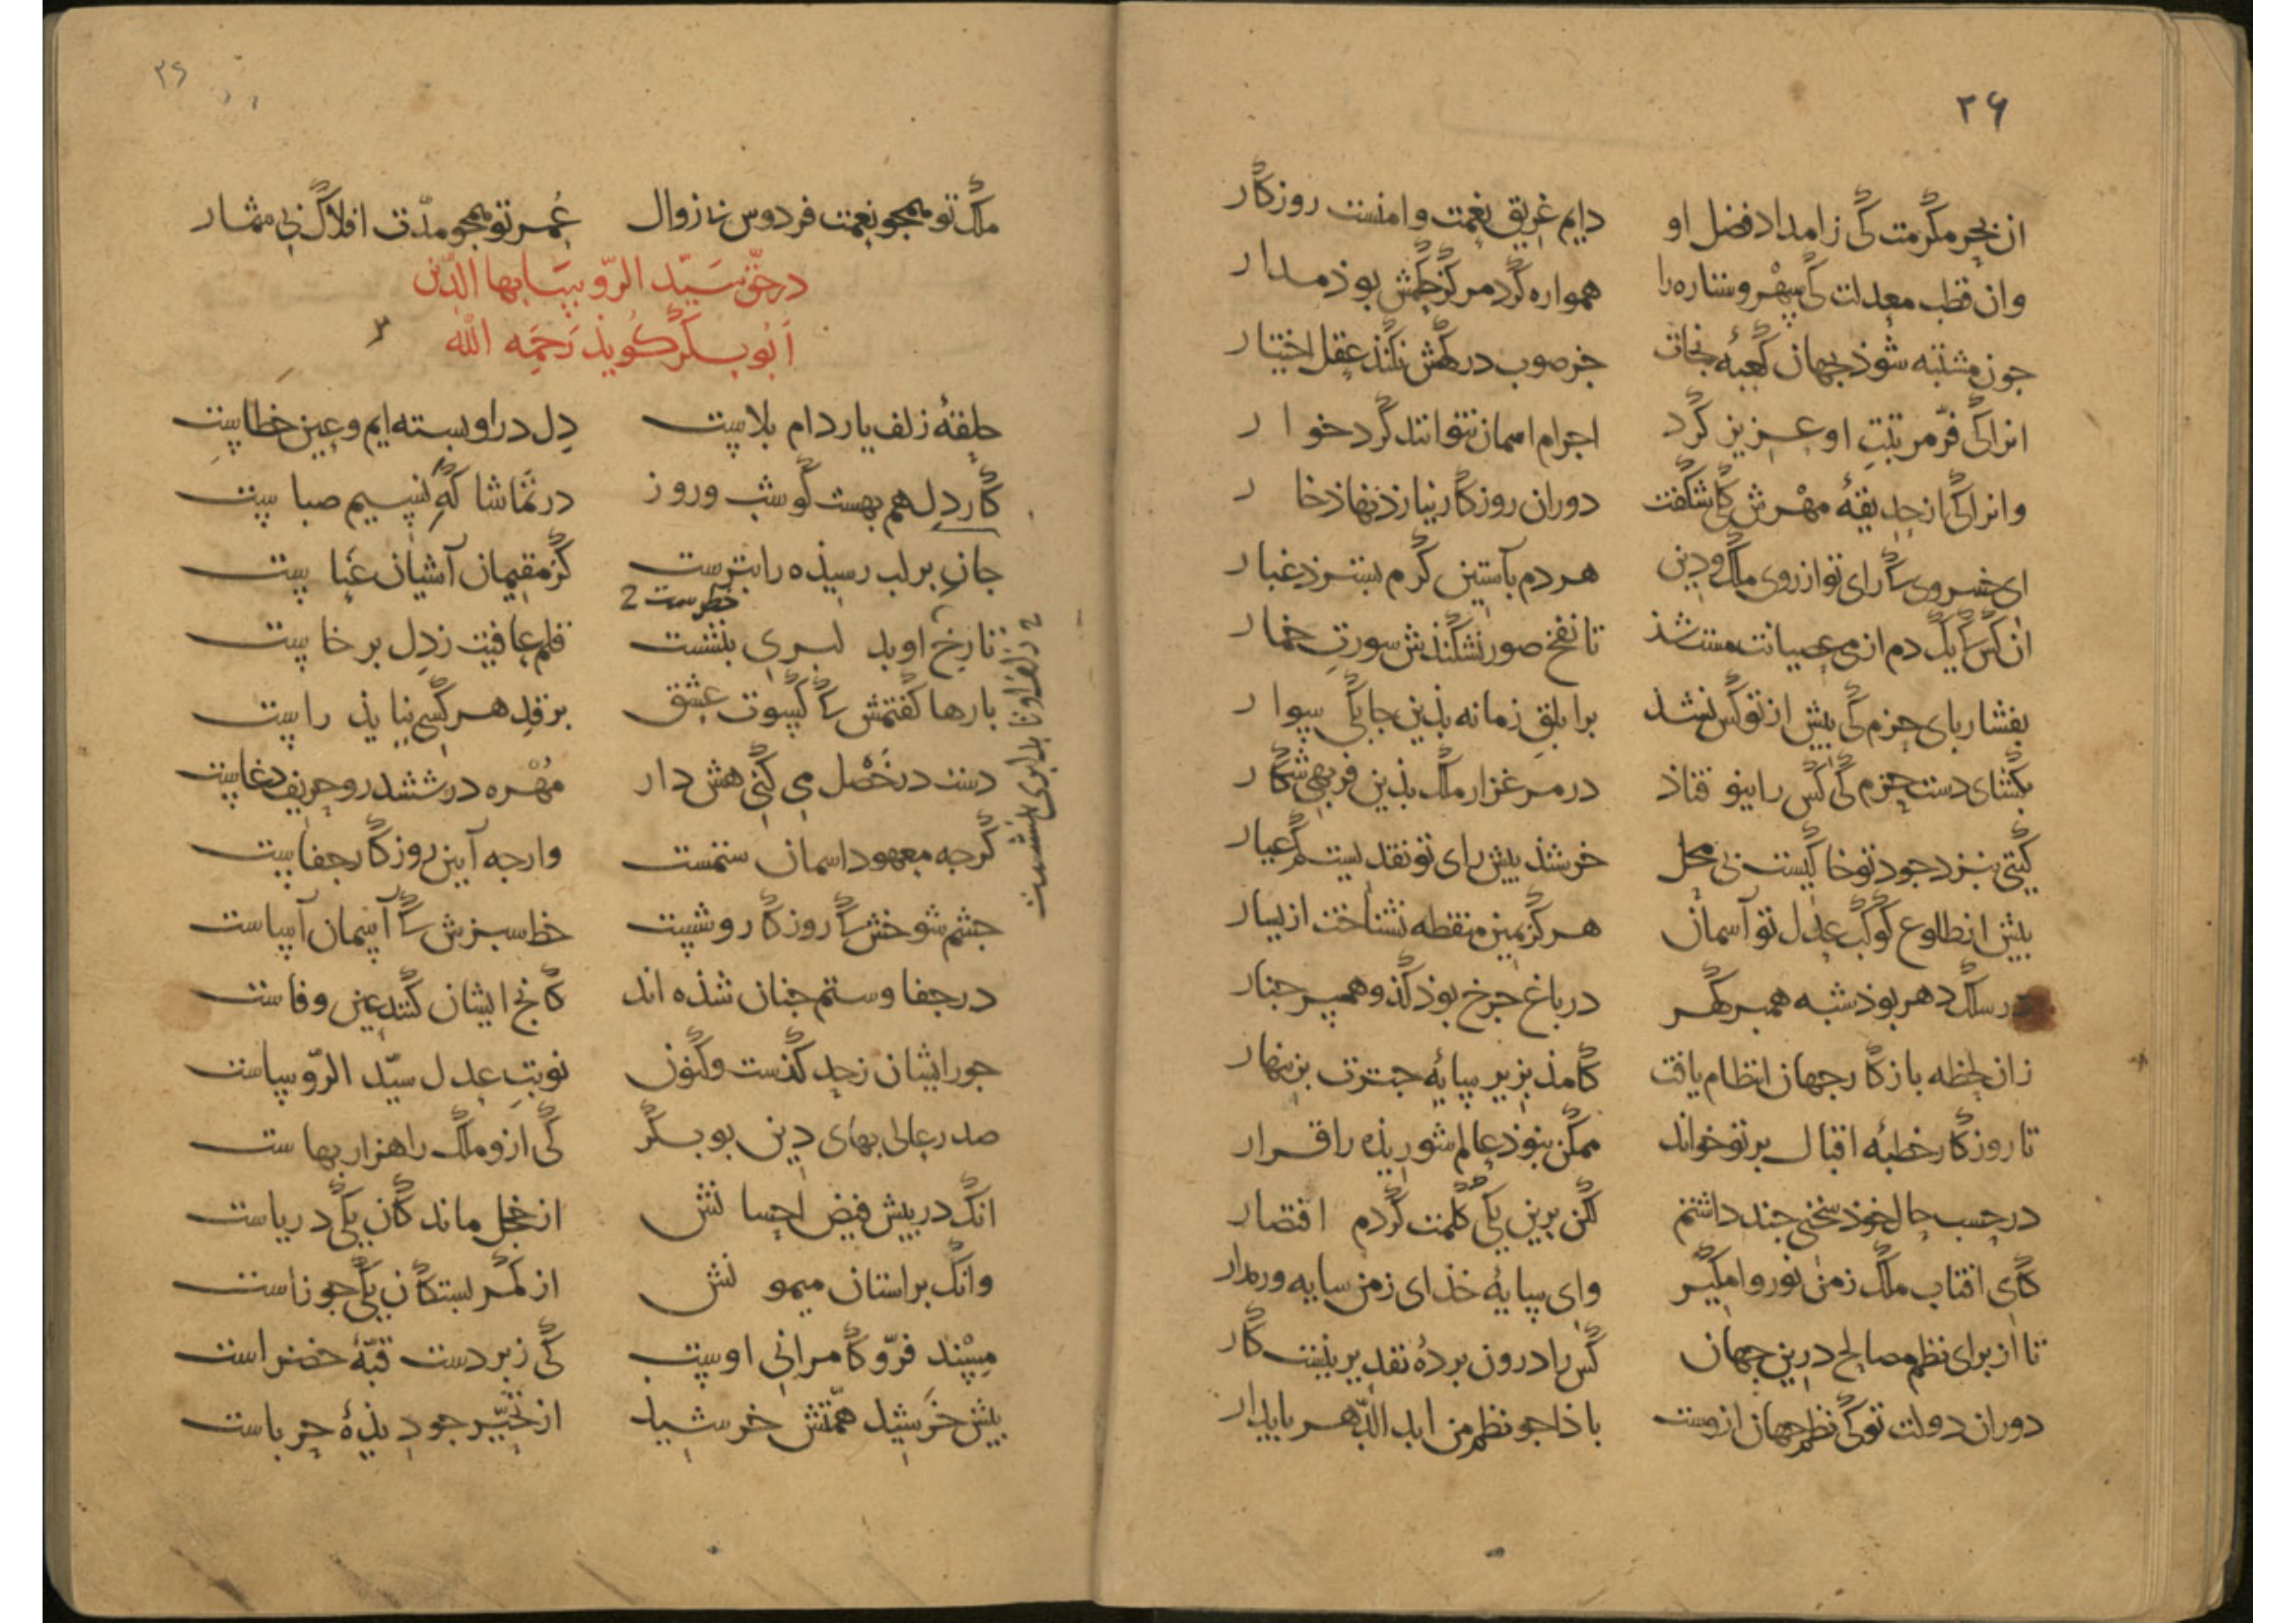 ۲۶
ان بحر مکرمت کی ز امداد فضل او دایم غریق نعمت و امنست روزکار
وان قطب معدلت کی سپهر و ستاره را همواره کرد مرکز حکمش بوذ مدار
جون مشتبه شوذ بجهان کعبهٔ نجات جز صوب درکهش نکند عقل اختیار
انرا کی فرّ مرتبت او عزیز کرد اجرام اسمان نتوانند کرد خوار
وانرا کی از حدیقهٔ مهرش کلی شکفت دوران روزکار نیارذ نهاذ خار
ای خسروی کا رای تو از روی ملک و دین هر دم بآستین کرم بسترذ غبار
ان کس کا یک دم از می عصیانت مست شذ تا نفخ صور نشکندش سورت خمار
بفشار بای حزم کی بیش از تو کس نشذ بر ابلق زمانه بذین جابکی سوار
بکشای دست حزم کی کس را نیوفتاذ در مرغزار ملک بذین فربهی شکار
کیتی بنزد جود تو خاکیست بی محل خرشذ بیش رای تو نقدیست کم عیار
بیش از طلوع کوکب عدل تو آسمان هرکز یمین منقطه نشناخت از یسار
در سلک دهر بوذ شبه همبر کهر در باغ جرخ بوذ کذو همسر جنار
زان لحظه باز کار جهان انتظام یافت کامذ بزیر سایهٔ جترت بزینهار
تا روزکار خطبهٔ اقبال بر تو خواند ممکن نبوذ عالم شوریذه را قرار
در حسب حال خوذ سخنی جند داشتم لکن برین یکی کلمت کردم اقتصار
کای افتاب ملک ز من نور وامکیر وای سایهٔ خذای ز من سایه ورمدار
تا از برای نظم مصالح درین جهان کس را درون بردهٔ تقدیر نیست کار
دوران دولت تو کی نظم جهان ازوست باذا جو نظم من ابد الدّهر بایدار
۲۶
ملک تو همجو نعمت فردوس بی زوال عمر تو همجو مدّت افلاک بی شمار
در حقّ سیّد الرّوسا بها الدّین
ابو بکر کویذ رحمه الله
حلقهٔ زلف یار دام بلاست دل در او بسته ایم و عین خطاست
کار دل هم بهست کو شب و روز در تماشا که نسیم صباست
جان بر لب رسیذه را بترست کز مقیمان آشیان عناست
خطرست 2
تا رخ او بد لبری بنشست قلم عافیت ز دل برخاست
2 زلف او تا بدلبری بنشست
بارها کفتمش کا کسوت عشق بر قد هر کسی نیایذ راست
دست در خصل می کنی هش دار مهره در ششدر و حریف دغاست
کرجه معهود اسمان ستمست وارجه آیین روزکار جفاست
جشم شوخش کا روزکار وشست خط سبزش کا آسمان آساست
در جفا و ستم جنان شذه اند کانج ایشان کنند عین وفاست
جور ایشان ز حد کذست و کنون نوبت عدل سیّد الرّوساست
صدر عالی بهای دین بو بکر کی ازو ملک را هزار بهاست
انک در بیش فیض احسانش از خجل ماندکان یکی دریاست
وانک بر استان میمونش از کمر بستکان یکی جوزاست
مسند فرّ و کامرانی اوست کی زبردست قبّهٔ خضراست
بیش خرشید همّتش خرشید از تحیّر جو دیذهٔ حرباست